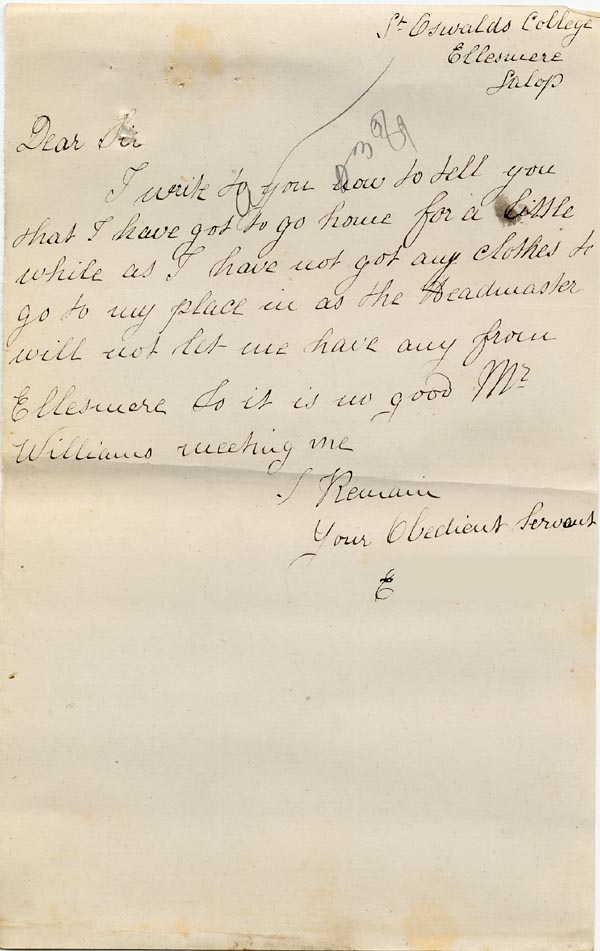 St Oswalds College
Ellesmere
Salop
Dear Sir
I write to you now to tell you
that I have got to go home for a little
while as I have not got any clothes to
go to my place in as the Headmaster
will not let me have any from
Ellesmere So it is no good Mr
Williams meeting me
I Remain
Your Obedient Servant
E